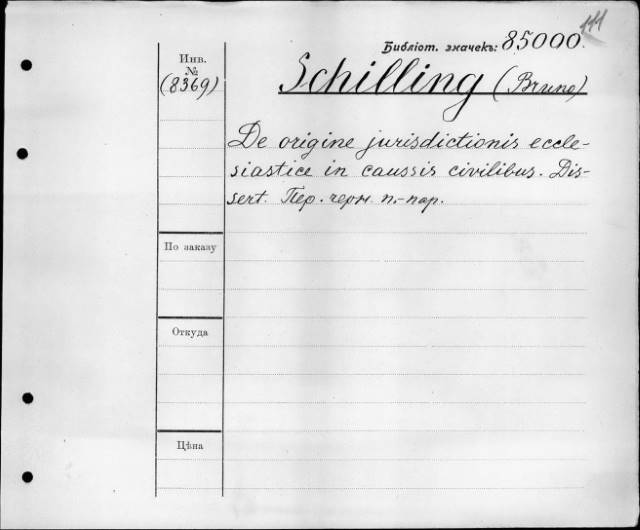 111
Библіот. значекъ: 85000.
Инв.
№
(8369)
Schilling (Bruno)
De origine jurisdictionis eccle-
siastice in caussis civilibus. Dis-
sert. Пер. черн. п.-пар.
По заказу
Откуда
Цѣна